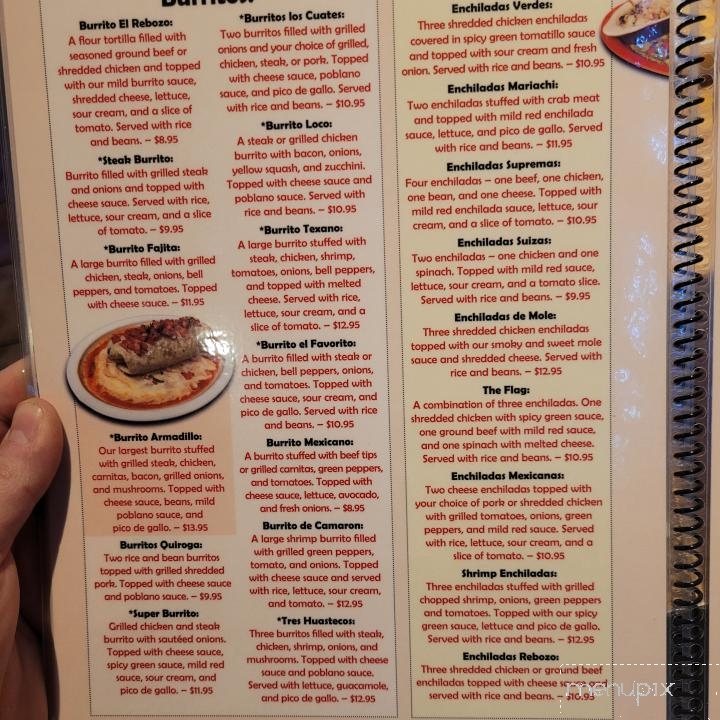 Burritos:
Burrito El Rebozo:
A flour tortilla filled with
seasoned ground beef or
shredded chicken and topped
with our mild burrito sauce,
shredded cheese, lettuce,
sour cream, and a slice of
tomato. Served with rice
and beans. – $8.95
*Steak Burrito:
Burrito filled with grilled steak
and onions and topped with
cheese sauce. Served with rice,
lettuce, sour cream, and a slice
of tomato. – $9.95
*Burrito Fajita:
A large burrito filled with grilled
chicken, steak, onions, bell
peppers, and tomatoes. Topped
with cheese sauce. – $11.95
*Burrito Armadillo:
Our largest burrito stuffed
with grilled steak, chicken,
carnitas, bacon, grilled onions,
and mushrooms. Topped with
cheese sauce, beans, mild
poblano sauce, and
pico de gallo. – $13.95
Burritos Quiroga:
Two rice and bean burritos
topped with grilled shredded
pork. Topped with cheese sauce
and poblano sauce. – $9.95
*Super Burrito:
Grilled chicken and steak
burrito with sautéed onions.
Topped with cheese sauce,
spicy green sauce, mild red
sauce, sour cream, and
pico de gallo. – $11.95
*Burritos los Cuates:
Two burritos filled with grilled
onions and your choice of grilled,
chicken, steak, or pork. Topped
with cheese sauce, poblano
sauce, and pico de gallo. Served
with rice and beans. – $10.95
*Burrito Loco:
A steak or grilled chicken
burrito with bacon, onions,
yellow squash, and zucchini.
Topped with cheese sauce and
poblano sauce. Served with
rice and beans. – $10.95
*Burrito Texano:
A large burrito stuffed with
steak, chicken, shrimp,
tomatoes, onions, bell peppers,
and topped with melted
cheese. Served with rice,
lettuce, sour cream, and a
slice of tomato. – $12.95
*Burrito el Favorito:
A burrito filled with steak or
chicken, bell peppers, onions,
and tomatoes. Topped with
cheese sauce, sour cream, and
pico de gallo. Served with rice
and beans. – $10.95
Burrito Mexicano:
A burrito stuffed with beef tips
or grilled carnitas, green peppers,
and tomatoes. Topped with
cheese sauce, lettuce, avocado,
and fresh onions. – $8.95
Burrito de Camaron:
A large shrimp burrito filled
with grilled green peppers,
tomato, and onions. Topped
with cheese sauce and served
with rice, lettuce, sour cream,
and tomato. – $12.95
*Tres Huastecos:
Three burritos filled with steak,
chicken, shrimp, onions, and
mushrooms. Topped with cheese
sauce and poblano sauce.
Served with lettuce, guacamole,
and pico de gallo. – $12.95
Enchiladas Verdes:
Three shredded chicken enchiladas
covered in spicy green tomatillo sauce
and topped with sour cream and fresh
onion. Served with rice and beans. – $10.95
Enchiladas Mariachi:
Two enchiladas stuffed with crab meat
and topped with mild red enchilada
sauce, lettuce, and pico de gallo. Served
with rice and beans. – $11.95
Enchiladas Supremas:
Four enchiladas – one beef, one chicken,
one bean, and one cheese. Topped with
mild red enchilada sauce, lettuce, sour
cream, and a slice of tomato. – $10.95
Enchiladas Suizas:
Two enchiladas – one chicken and one
spinach. Topped with mild red sauce,
lettuce, sour cream, and a tomato slice.
Served with rice and beans. – $9.95
Enchiladas de Mole:
Three shredded chicken enchiladas
topped with our smoky and sweet mole
sauce and shredded cheese. Served with
rice and beans. – $12.95
The Flag:
A combination of three enchiladas. One
shredded chicken with spicy green sauce,
one ground beef with mild red sauce,
and one spinach with melted cheese.
Served with rice and beans. – $10.95
Enchiladas Mexicanas:
Two cheese enchiladas topped with
your choice of pork or shredded chicken
with grilled tomatoes, onions, green
peppers, and mild red sauce. Served
with rice, lettuce, sour cream, and a
slice of tomato. – $10.95
Shrimp Enchiladas:
Three enchiladas stuffed with grilled
chopped shrimp, onions, green peppers
and tomatoes. Topped with our spicy
green sauce, lettuce and pico de gallo.
Served with rice and beans. – $12.95
Enchiladas Rebozo:
Three shredded chicken or ground beef
enchiladas topped with cheese sauce and
served with rice and beans. – $10.95
menupix